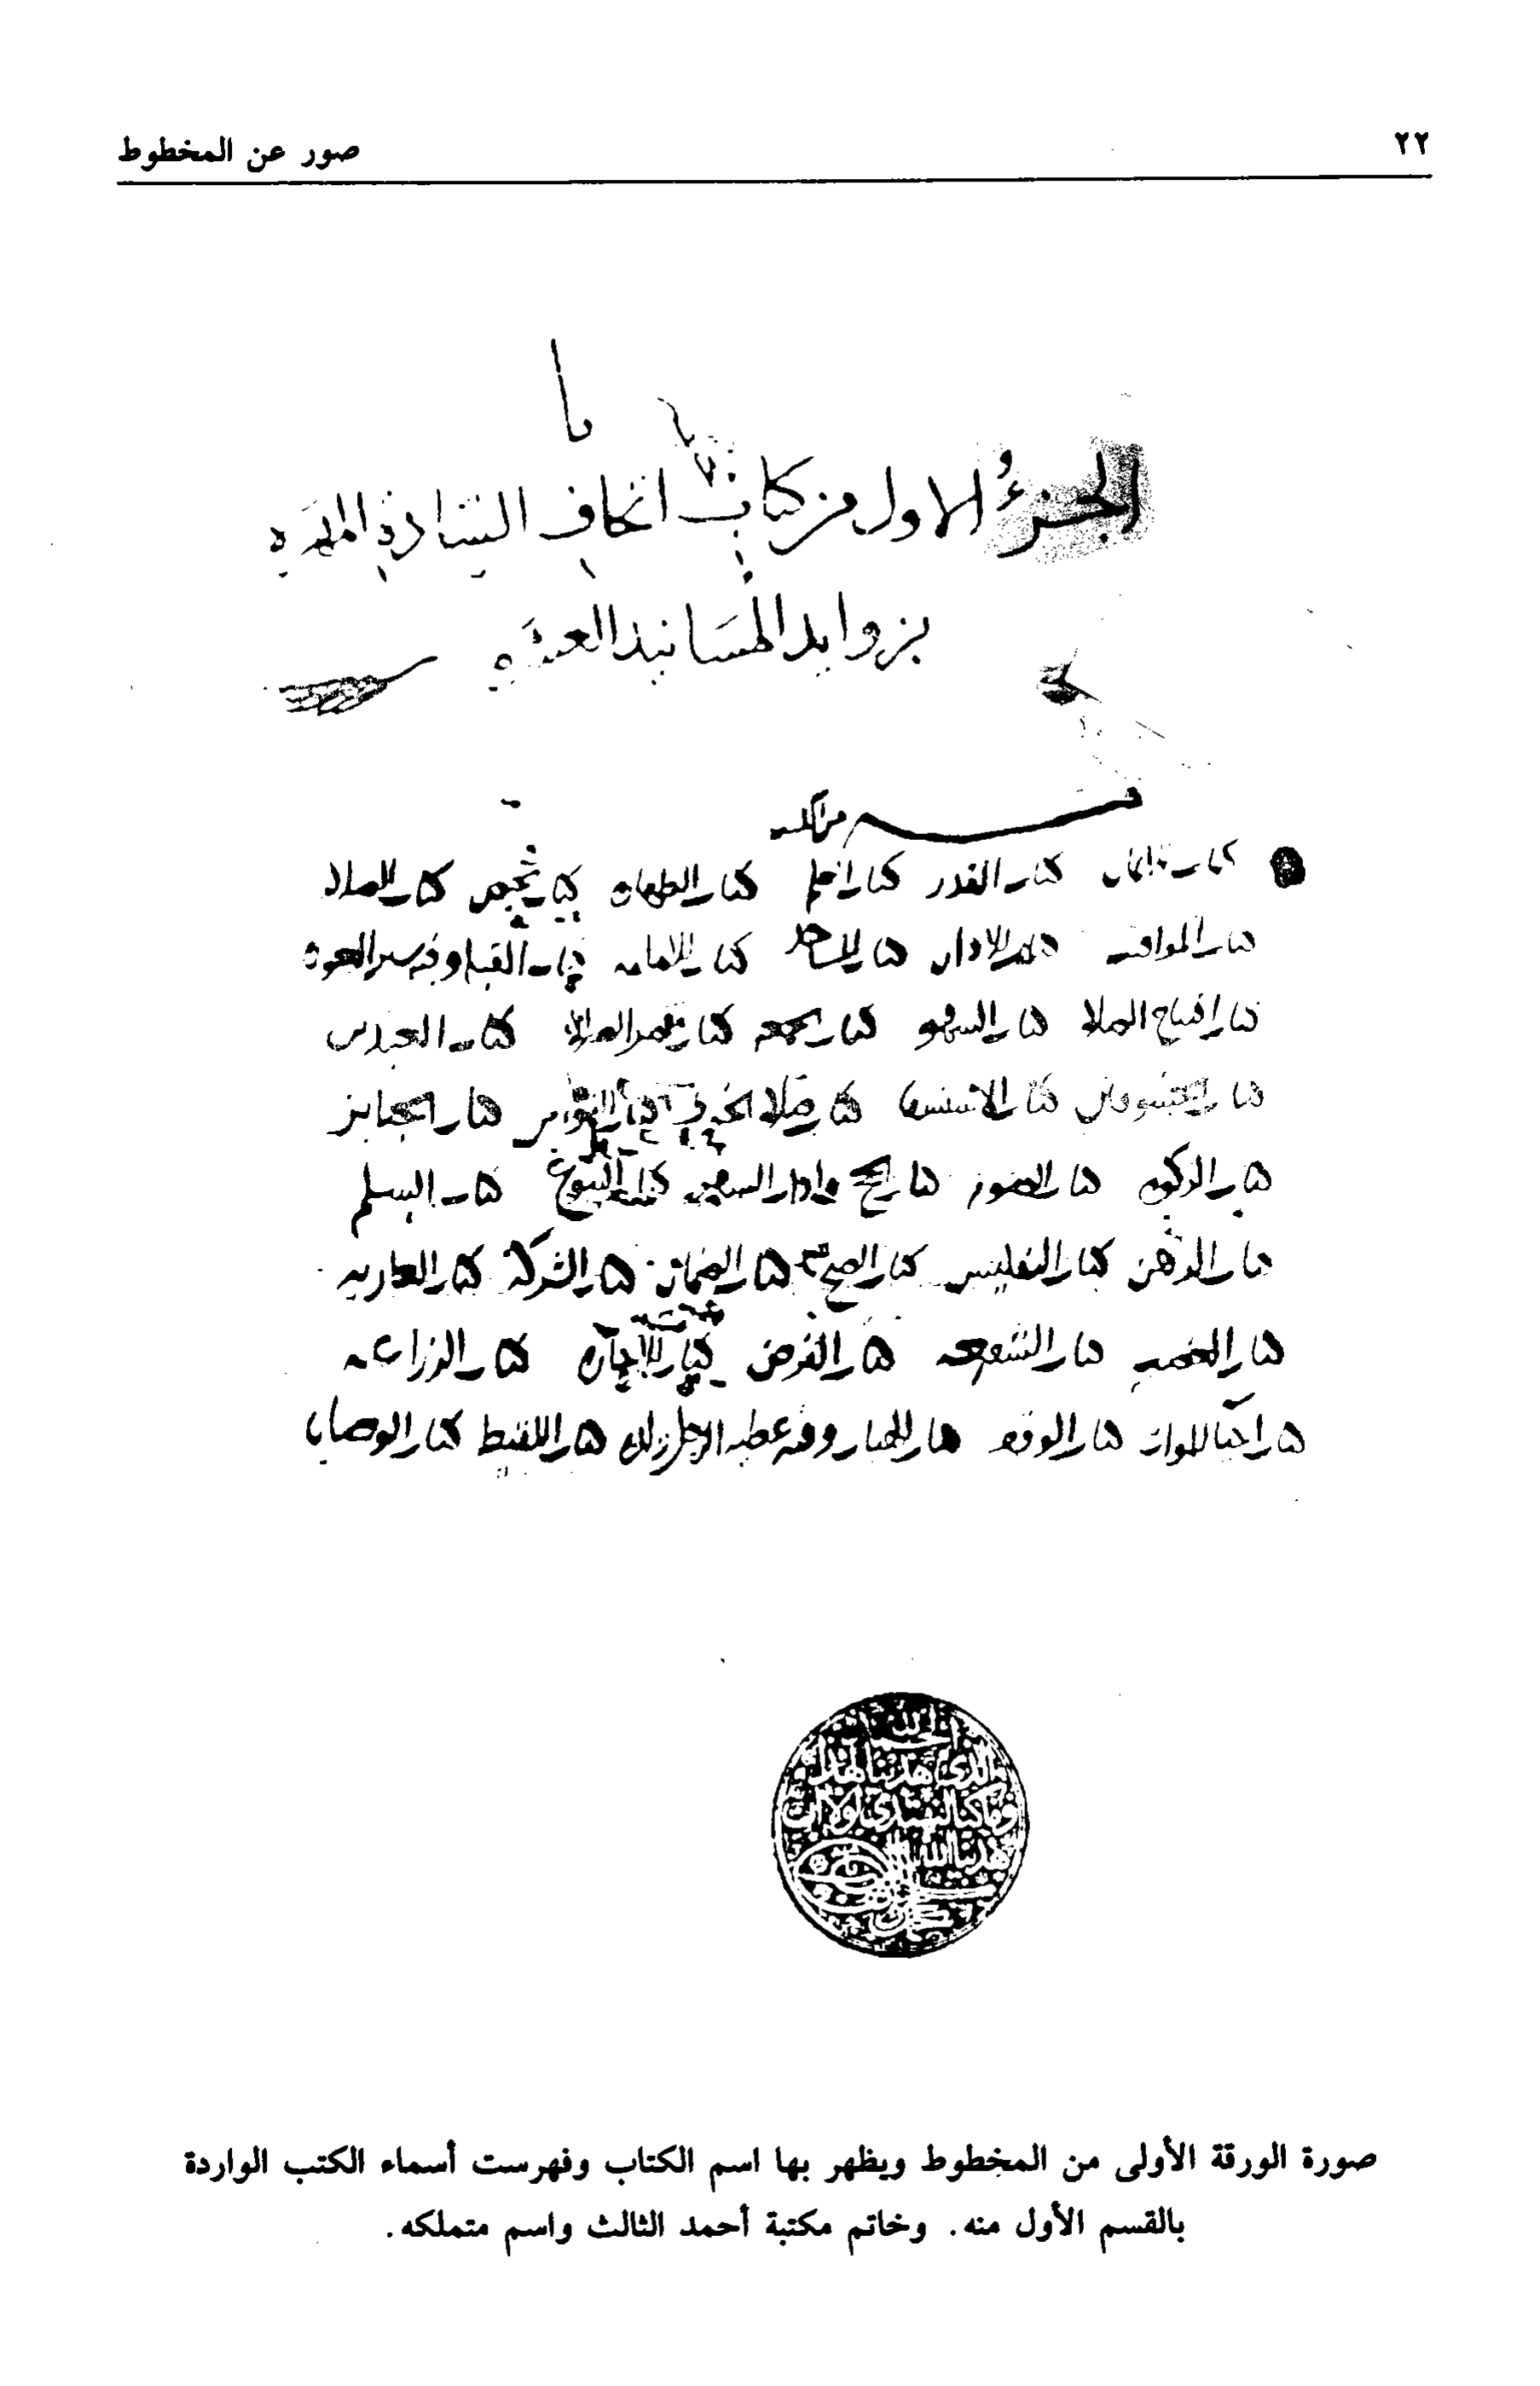 ٢٢ صور عن المخطوط
الجزء الاول من كتاب اتحاف السادة المهره
بزوايد المسانيد العشره
كتاب الايمان كتاب القدر كتاب العلم كتاب الطهاره كتاب الحيض كتاب الصلاة
كتاب المواقيت كتاب الاذان كتاب المساجد كتاب الامامه كتاب القبله وفيه ستر العوره
كتاب افتتاح الصلاة كتاب السهو كتاب الجمعه كتاب قصر الصلاة كتاب العيدين
كتاب الكسوف كتاب الاستسقا كتاب صلاة الخوف كتاب النوافل كتاب الجنايز
كتاب الزكوه كتاب الصوم كتاب الحج كتاب البيوع كتاب السلم
كتاب الرهن كتاب التفليس كتاب الصلح كتاب الضمان كتاب الشركه كتاب العاريه
كتاب الغصب كتاب الشفعه كتاب القرض كتاب الاجاره كتاب المزارعه
كتاب احيا الموات كتاب الوقف كتاب الهبات وفيه عطيه الرجل كتاب اللقيط كتاب الوصايا
الحمد لله
الذي هدينا لهذا
وما كنا لنهتدي لولا ان
هدينا الله
صورة الورقة الأولى من المخطوط ويظهر بها اسم الكتاب وفهرست أسماء الكتب الواردة
بالقسم الأول منه. وخاتم مكتبة أحمد الثالث واسم متملكه.